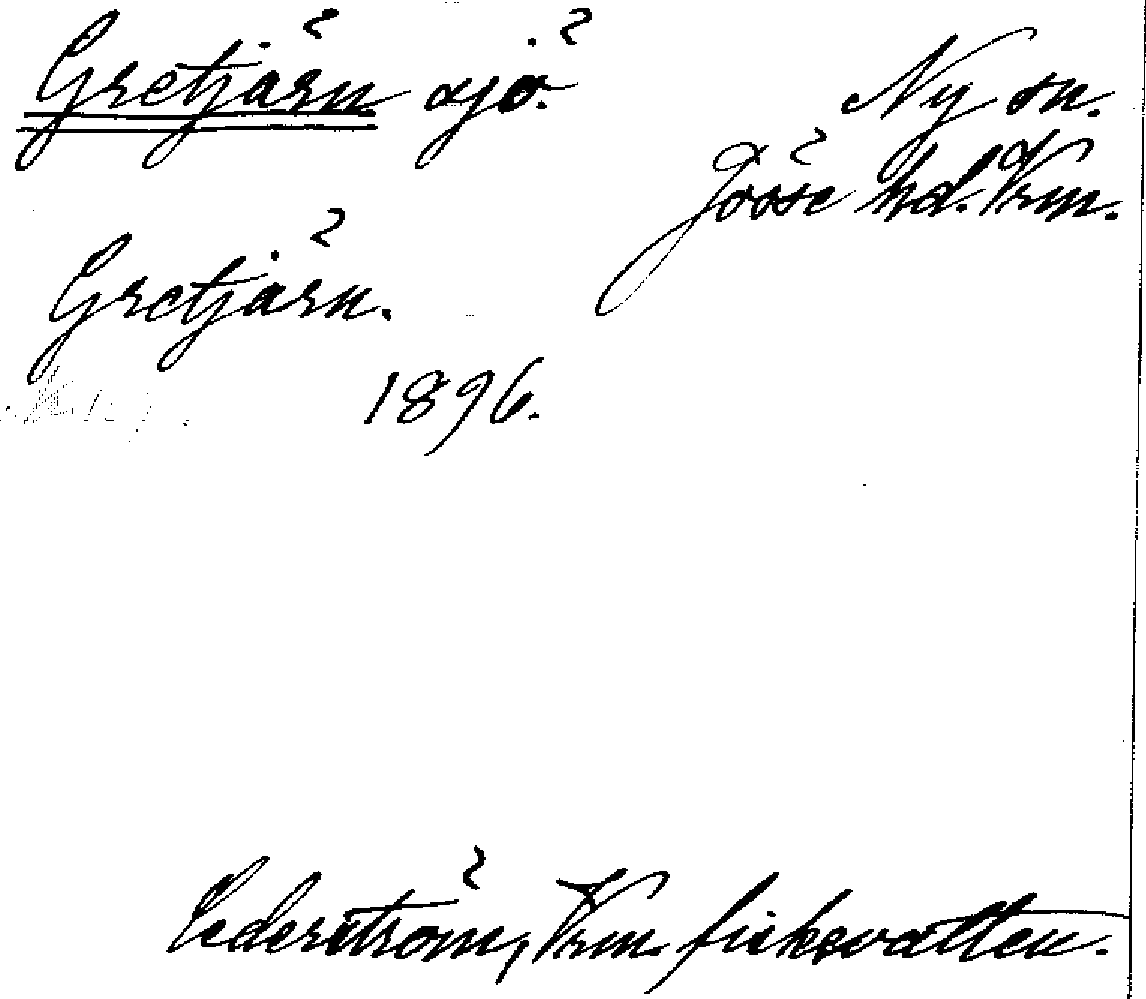 Gretjärn sjö. Ny sn.
Jösse hd. Vrm.
Gretjärn.
1896.
Cederström, Vrm. fiskevatten.